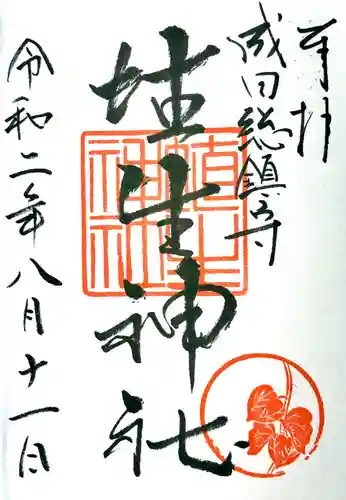 奉拝
成田総鎮守
埴生神社
埴生
神社
令和二年八月十一日